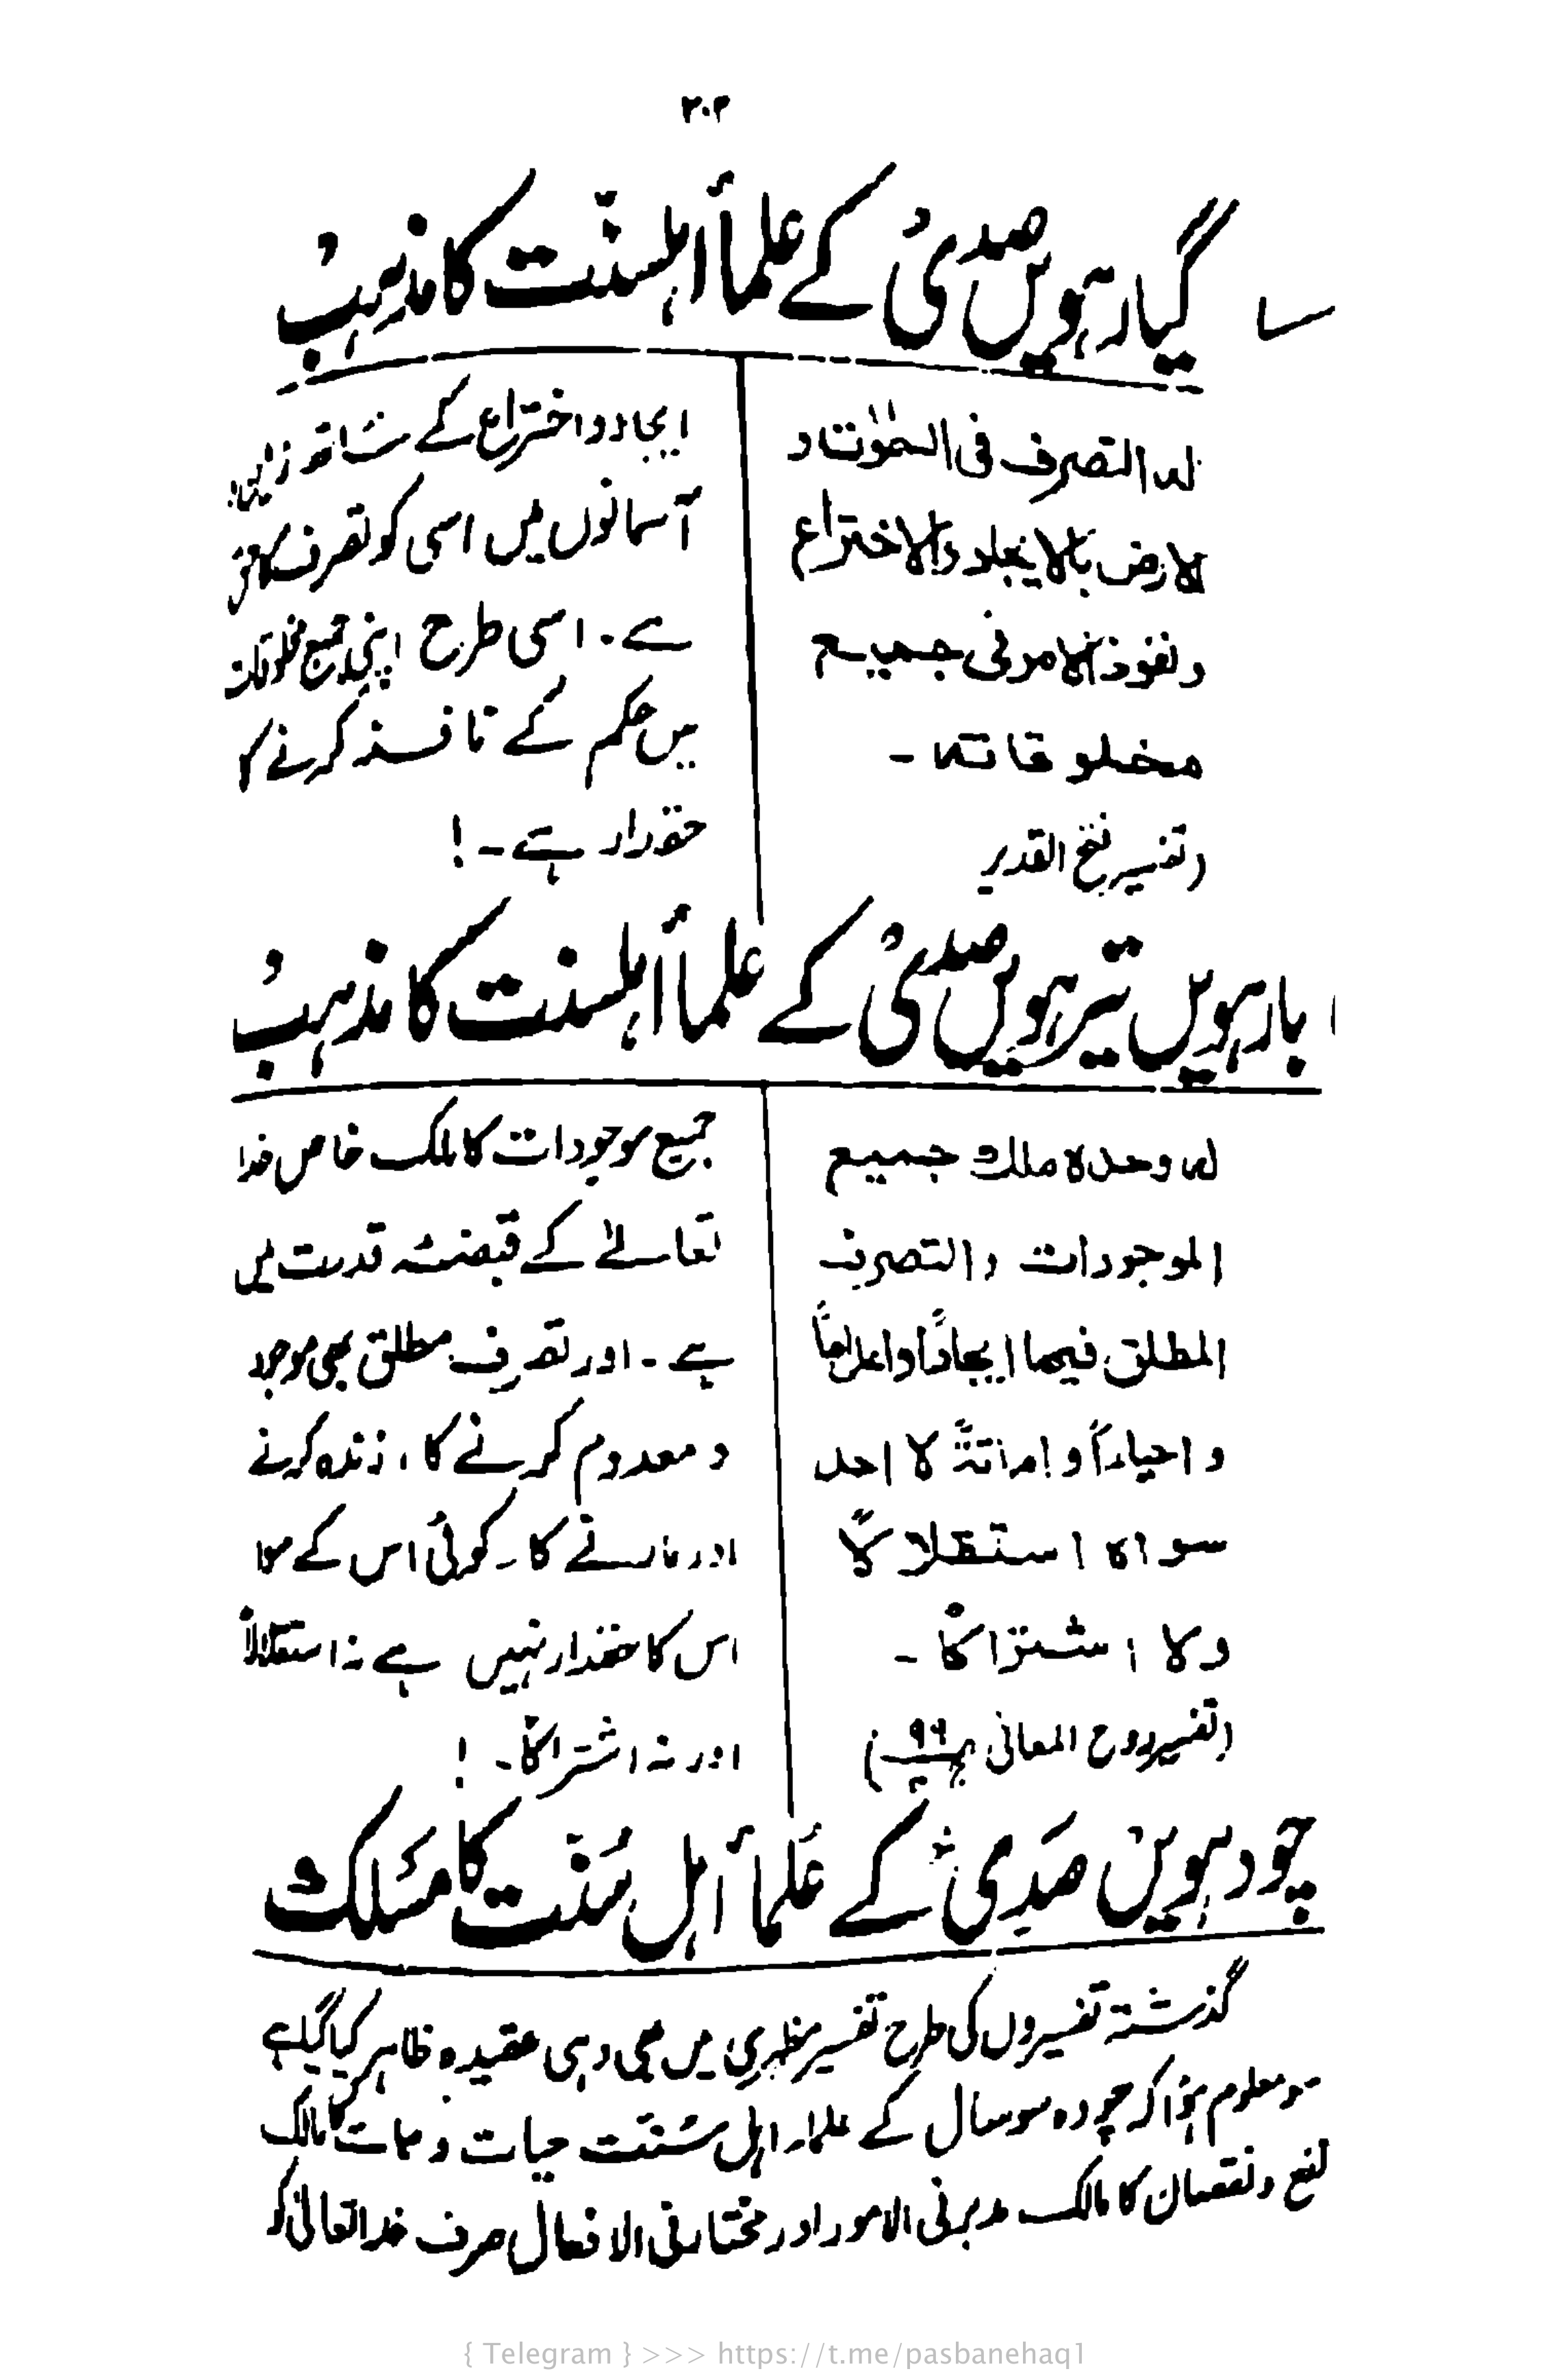 ۲۰۲
گیارہویں صدی کے علمأ اہلسنّت کا مذہب
لہ التصرف فی السمٰوٰت و
الارض بالایجاد والاختراع
و نفوذ الامر فی جمیع
مخلوقاتہ -
(تفسیر فتح القدیر
ایجاد و اختراع کے ساتھ زمین
آسمانوں میں اسی کو تصرف کا حق
ہے ۔ اسی طرح اپنی جمیع مخلوقات
میں حکم کے نافذ کرنے کا
حقدار ہے ۔ !
بارہویں تیرہویں صدی کے علمأ اہلسنت کا مذہب
لہ وحدہ ملک جمیع
الموجودات والتصرف
المطلق فیہا ایجاداً واعداماً
و احیاءاً و إماتةً لا احد
سواہ استقلالاً
ولا اشتراکاً -
(تفسیر روح المعانی ۹۶)
جمیع موجودات کا ملک خاص خدا
تعالےٰ کے قبضۂ قدرت میں
ہے ۔ اور تصرف مطلق بھی موجود
و معدوم کرنے کا ، زندہ کرنے
اور مارنے کا ۔ کوئی اس کے سوا
اس کا حقدار نہیں ہے نہ استقلالاً
اور نہ اشتراکاً ۔ !
چودہویں صدی کے علمأ اہل سنت کا مسلک
گذشتہ تفسیروں کی طرح تفسیر مظہری میں بھی وہی عقیدہ ظاہر کیا گیا ہے
سو معلوم ہؤا کہ چودہ سو سال کے علماء اہل سنّت حیات و ممات کا مالک
نفع و نقصان کا مالک مدبر فی الامور اور مختار فی الافعال صرف خدا تعالیٰ کو
{ Telegram } >>> https://t.me/pasbanehaq1